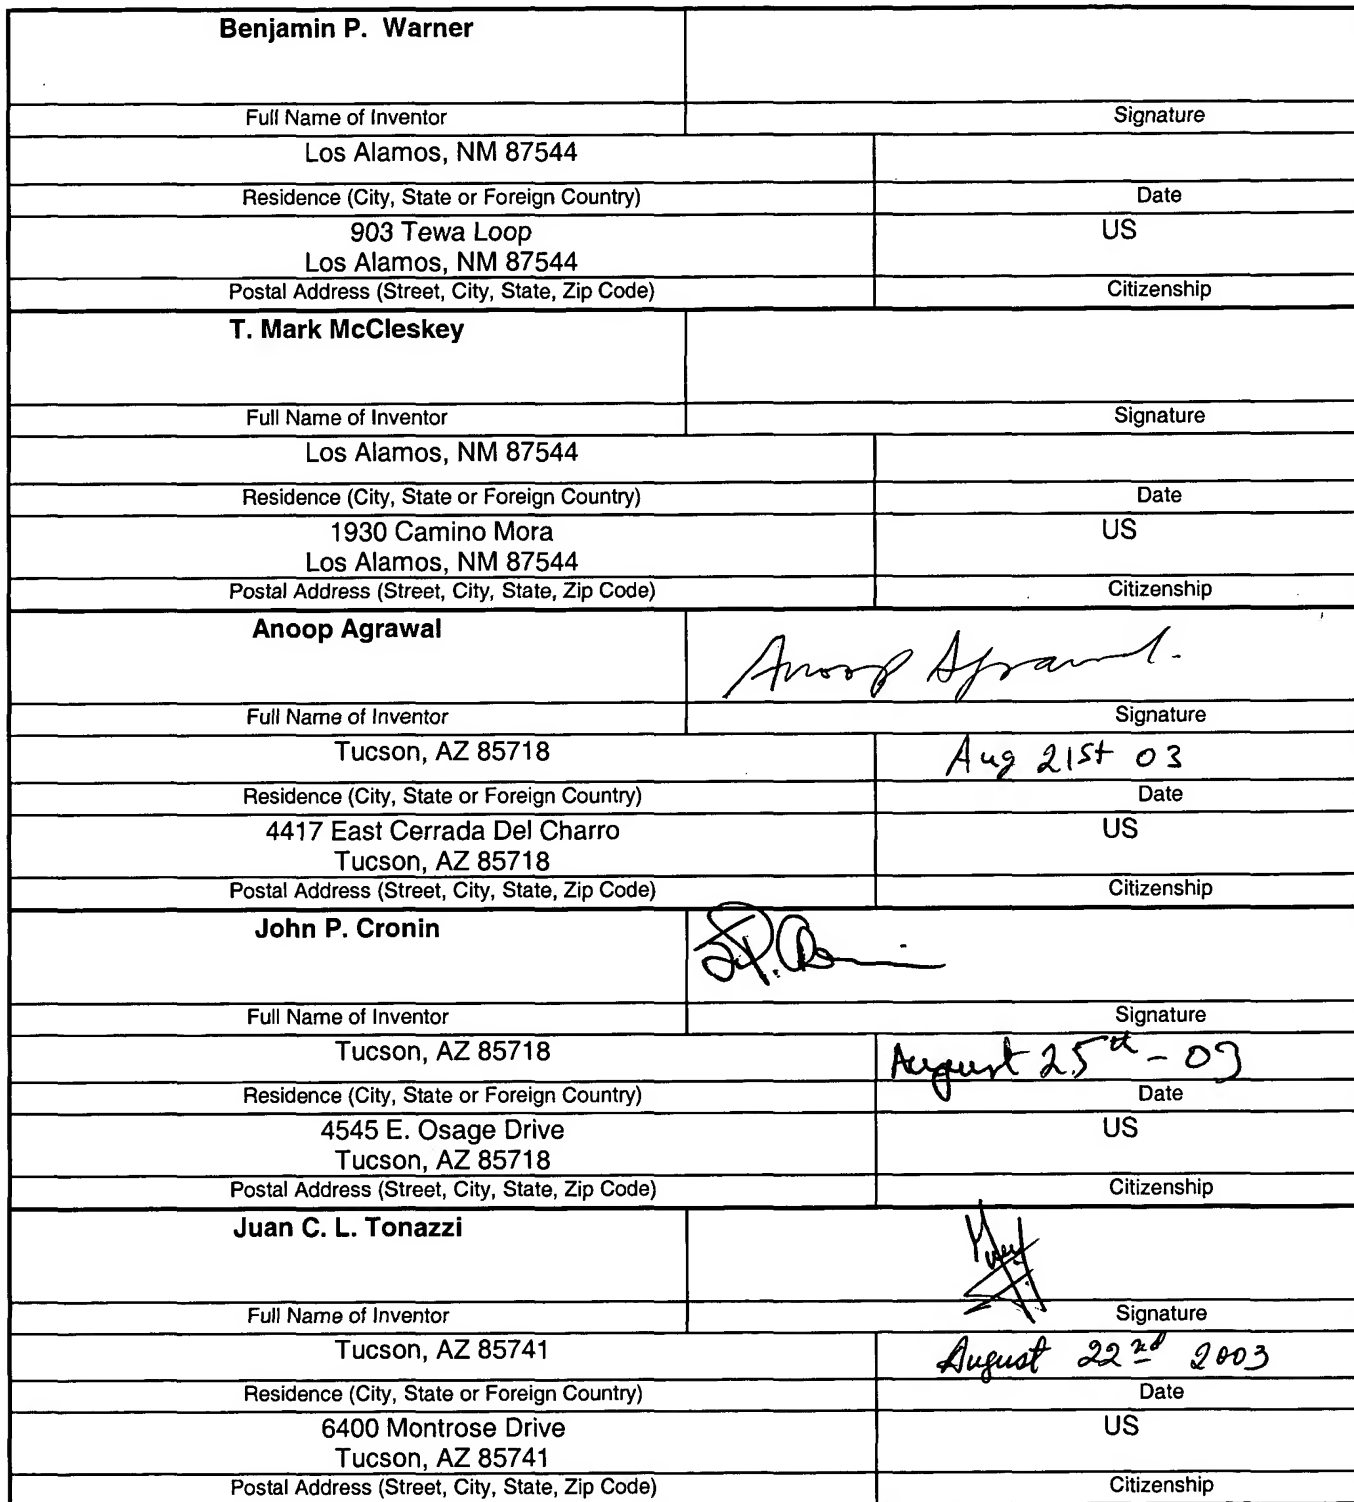 Benjamin P. Warner
Full Name of Inventor Signature
Los Alamos, NM 87544
Residence (City, State or Foreign Country) Date
903 Tewa Loop US
Los Alamos, NM 87544
Postal Address (Street, City, State, Zip Code) Citizenship
T. Mark McCleskey
Full Name of Inventor Signature
Los Alamos, NM 87544
Residence (City, State or Foreign Country) Date
1930 Camino Mora US
Los Alamos, NM 87544
Postal Address (Street, City, State, Zip Code) Citizenship
Anoop Agrawal
Anoop Agrawal.
Full Name of Inventor Signature
Tucson, AZ 85718 Aug 21st 03
Residence (City, State or Foreign Country) Date
4417 East Cerrada Del Charro US
Tucson, AZ 85718
Postal Address (Street, City, State, Zip Code) Citizenship
John P. Cronin
J.P. Cronin
Full Name of Inventor Signature
Tucson, AZ 85718 August 25th - 03
Residence (City, State or Foreign Country) Date
4545 E. Osage Drive US
Tucson, AZ 85718
Postal Address (Street, City, State, Zip Code) Citizenship
Juan C. L. Tonazzi
Full Name of Inventor Signature
Tucson, AZ 85741 August 22nd 2003
Residence (City, State or Foreign Country) Date
6400 Montrose Drive US
Tucson, AZ 85741
Postal Address (Street, City, State, Zip Code) Citizenship